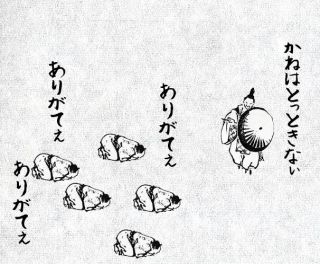 かねはとっときない
ありがてえ
ありがてえ
ありがてえ